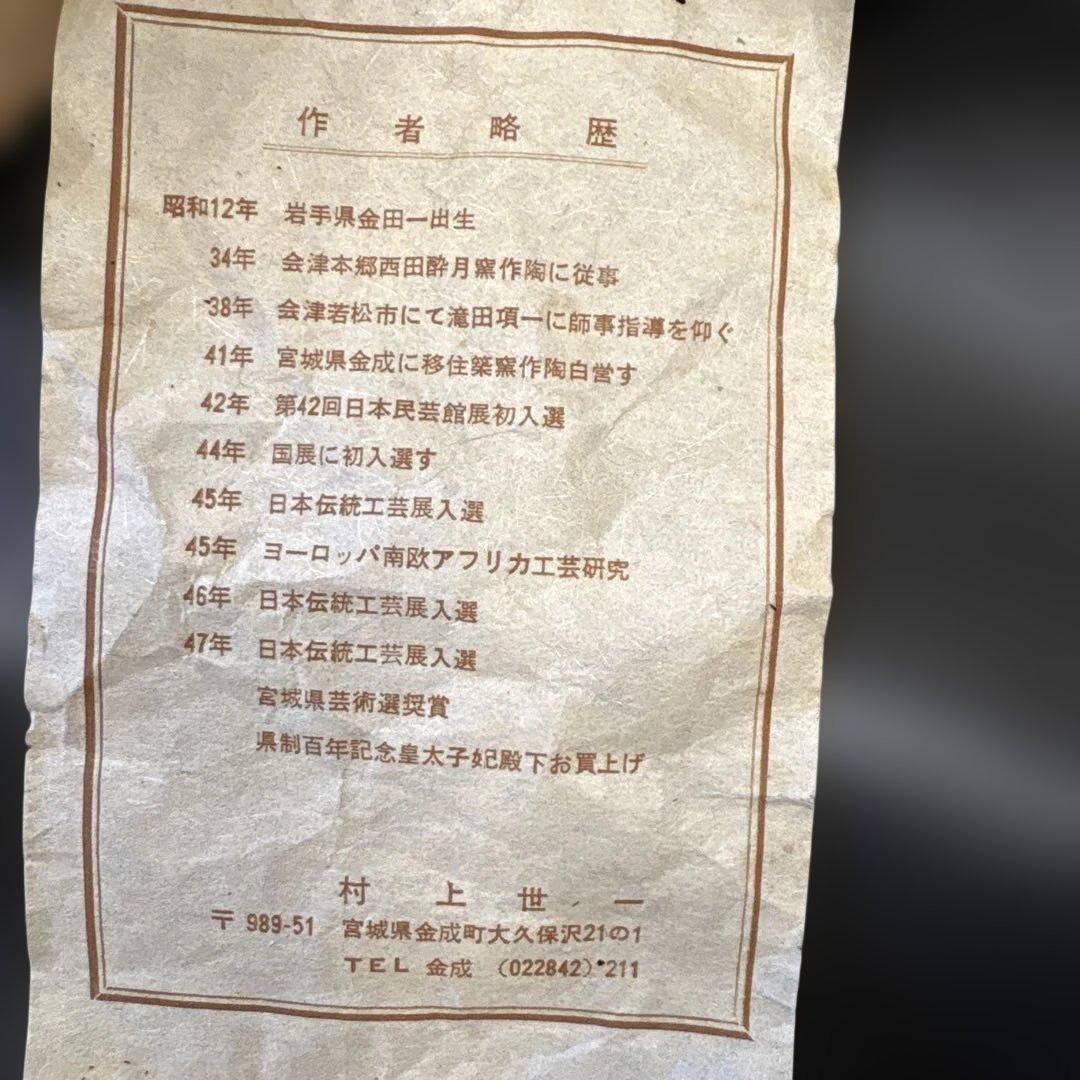 作者略歴
昭和12年 岩手県金田一出生
34年 会津本郷西田酔月窯作陶に従事
38年 会津若松市にて滝田項一に師事指導を仰ぐ
41年 宮城県金成に移住築窯作陶自営す
42年 第42回日本民芸館展初入選
44年 国展に初入選す
45年 日本伝統工芸展入選
45年 ヨーロッパ南欧アフリカ工芸研究
46年 日本伝統工芸展入選
47年 日本伝統工芸展入選
宮城県芸術選奨賞
県制百年記念皇太子妃殿下お買上げ
村上世一
〒989-51 宮城県金成町大久保沢21の1
TEL 金成 (022842) 211